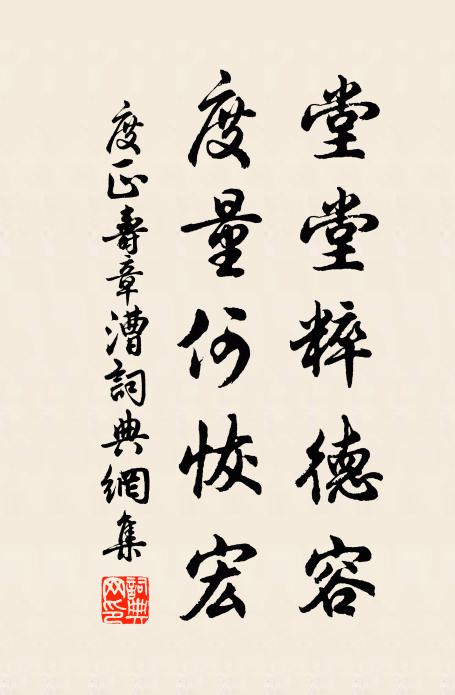 堂堂粹德容
度量何恢宏
度正壽章漕詞典網集
詞典網印